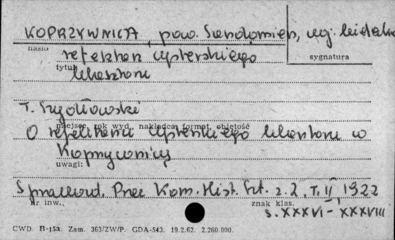 KOPRZYWNICA, pow. Sandomierz, woj. kieleckie
hasło
refektarz cysterskiego
sygnatura
tytuł
klasztoru
T. Szydłowski
miejsce, rok wyd. nakładca, format, objętość
O refektarzu cysterskiego klasztoru w
Koprzywnicy
uwagi:
Sprawozd. Prac Kom. Hist. Szt. z. 2. T. II 1922
nr inw.,
znak klas.
s. XXXVI-XXXVIII
CWD. B-153. Zam. 363/ZW/P. GDA-543. 19.2.62. 2.260.000.